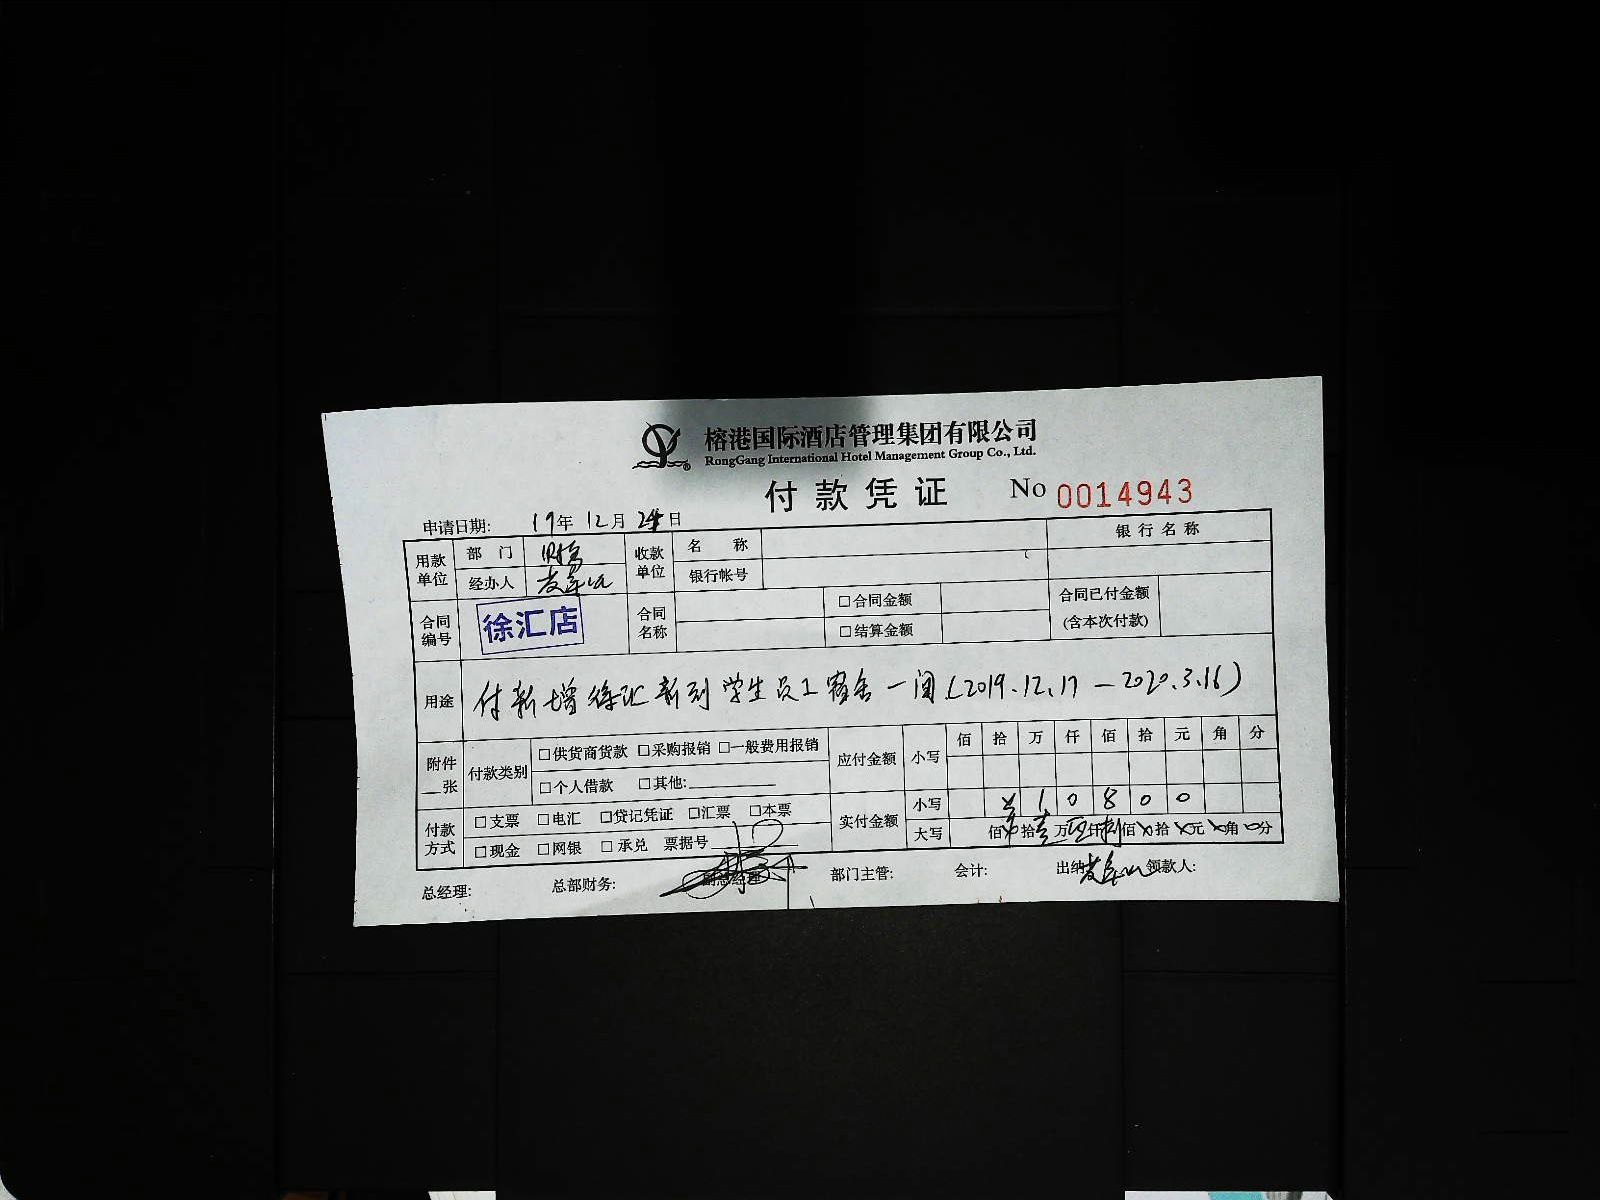 榕港国际酒店管理集团有限公司
RongGang International Hotel Management Group Co., Ltd.
付款凭证 No 0014943
申请日期: 19年12月24日
用款单位 部门 财务 收款单位 名称 银行名称
经办人 银行帐号
合同编号 徐汇店 合同名称 □合同金额 合同已付金额(含本次付款)
□结算金额
用途 付新增徐汇新到学生员工宿舍一间(2019.12.17—2020.3.16)
附件 张 付款类别 □供货商货款 □采购报销 □一般费用报销 应付金额 小写 佰 拾 万 仟 佰 拾 元 角 分
□个人借款 □其他:
付款方式 □支票 □电汇 □贷记凭证 □汇票 □本票 实付金额 小写 ¥10800
□现金 □网银 □承兑 票据号 大写 佰 拾 壹万 仟 捌佰 拾 元 角 分
总经理: 总部财务: 副总经理 部门主管: 会计: 出纳 领款人: